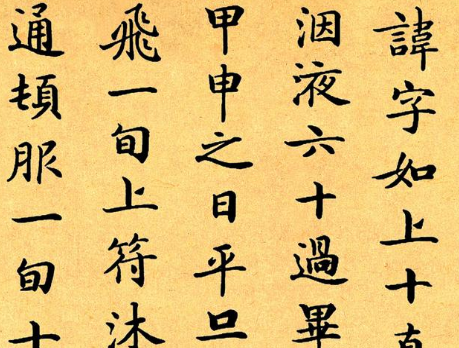 諱字如上十
洇液六十過畢
甲申之日平旦
飛一旬上符沐
通頓服一旬十